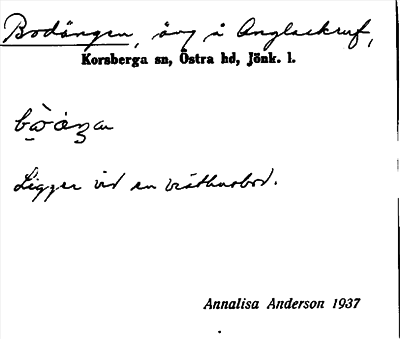 Bodängen, äng å Anglaekruf,
Korsberga sn, Östra hd, Jönk. l.
Ligger vid en visthusbod.
Annalisa Anderson 1937